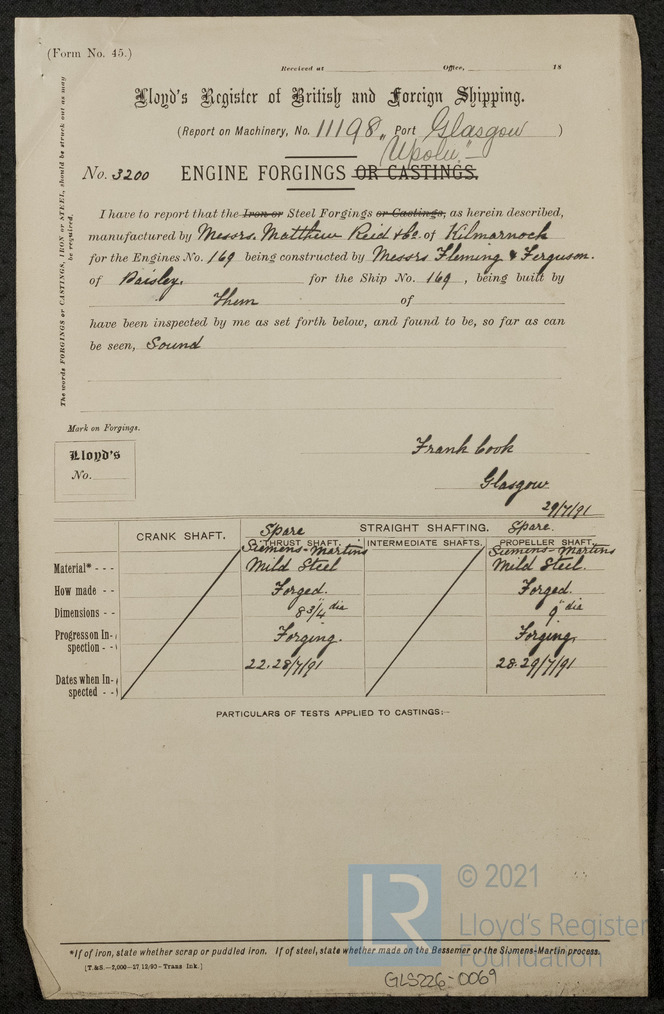 (Form No. 45.)
Received at Office, 18
Lloyd's Register of British and Foreign Shipping.
(Report on Machinery, No. 11198, Port Glasgow )
"Upolu"
No. 3200 ENGINE FORGINGS OR CASTINGS.
The words FORGINGS or CASTINGS, IRON or STEEL, should be struck out as may be required.
I have to report that the Iron or Steel Forgings or Castings, as herein described,
manufactured by Messrs. Matthew Reid & Co. of Kilmarnock
for the Engines No. 169 being constructed by Messrs Fleming & Ferguson.
of Paisley. for the Ship No. 169, being built by
Them of
have been inspected by me as set forth below, and found to be, so far as can
be seen, Sound
Mark on Forgings.
Lloyd's
No.
Frank Cook
Glasgow
29/7/91
CRANK SHAFT. Spare STRAIGHT SHAFTING. Spare.
THRUST SHAFT. INTERMEDIATE SHAFTS. PROPELLER SHAFT.
Siemens-Martins Siemens-Martins
Material* - - - Mild Steel Mild Steel.
How made - - Forged. Forged.
Dimensions - - 8 3/4" dia 9" dia
Progress on In-
spection - - Forging. Forging.
22.28/7/91 28.29/7/91
Dates when In-
spected - -
PARTICULARS OF TESTS APPLIED TO CASTINGS:—
LR © 2021
Lloyd's Register
Foundation
*If of iron, state whether scrap or puddled iron. If of steel, state whether made on the Bessemer or the Siemens-Martin process.
[T.&S.—2,000—17/12/90—Trans Ink.]
GLS226-0069